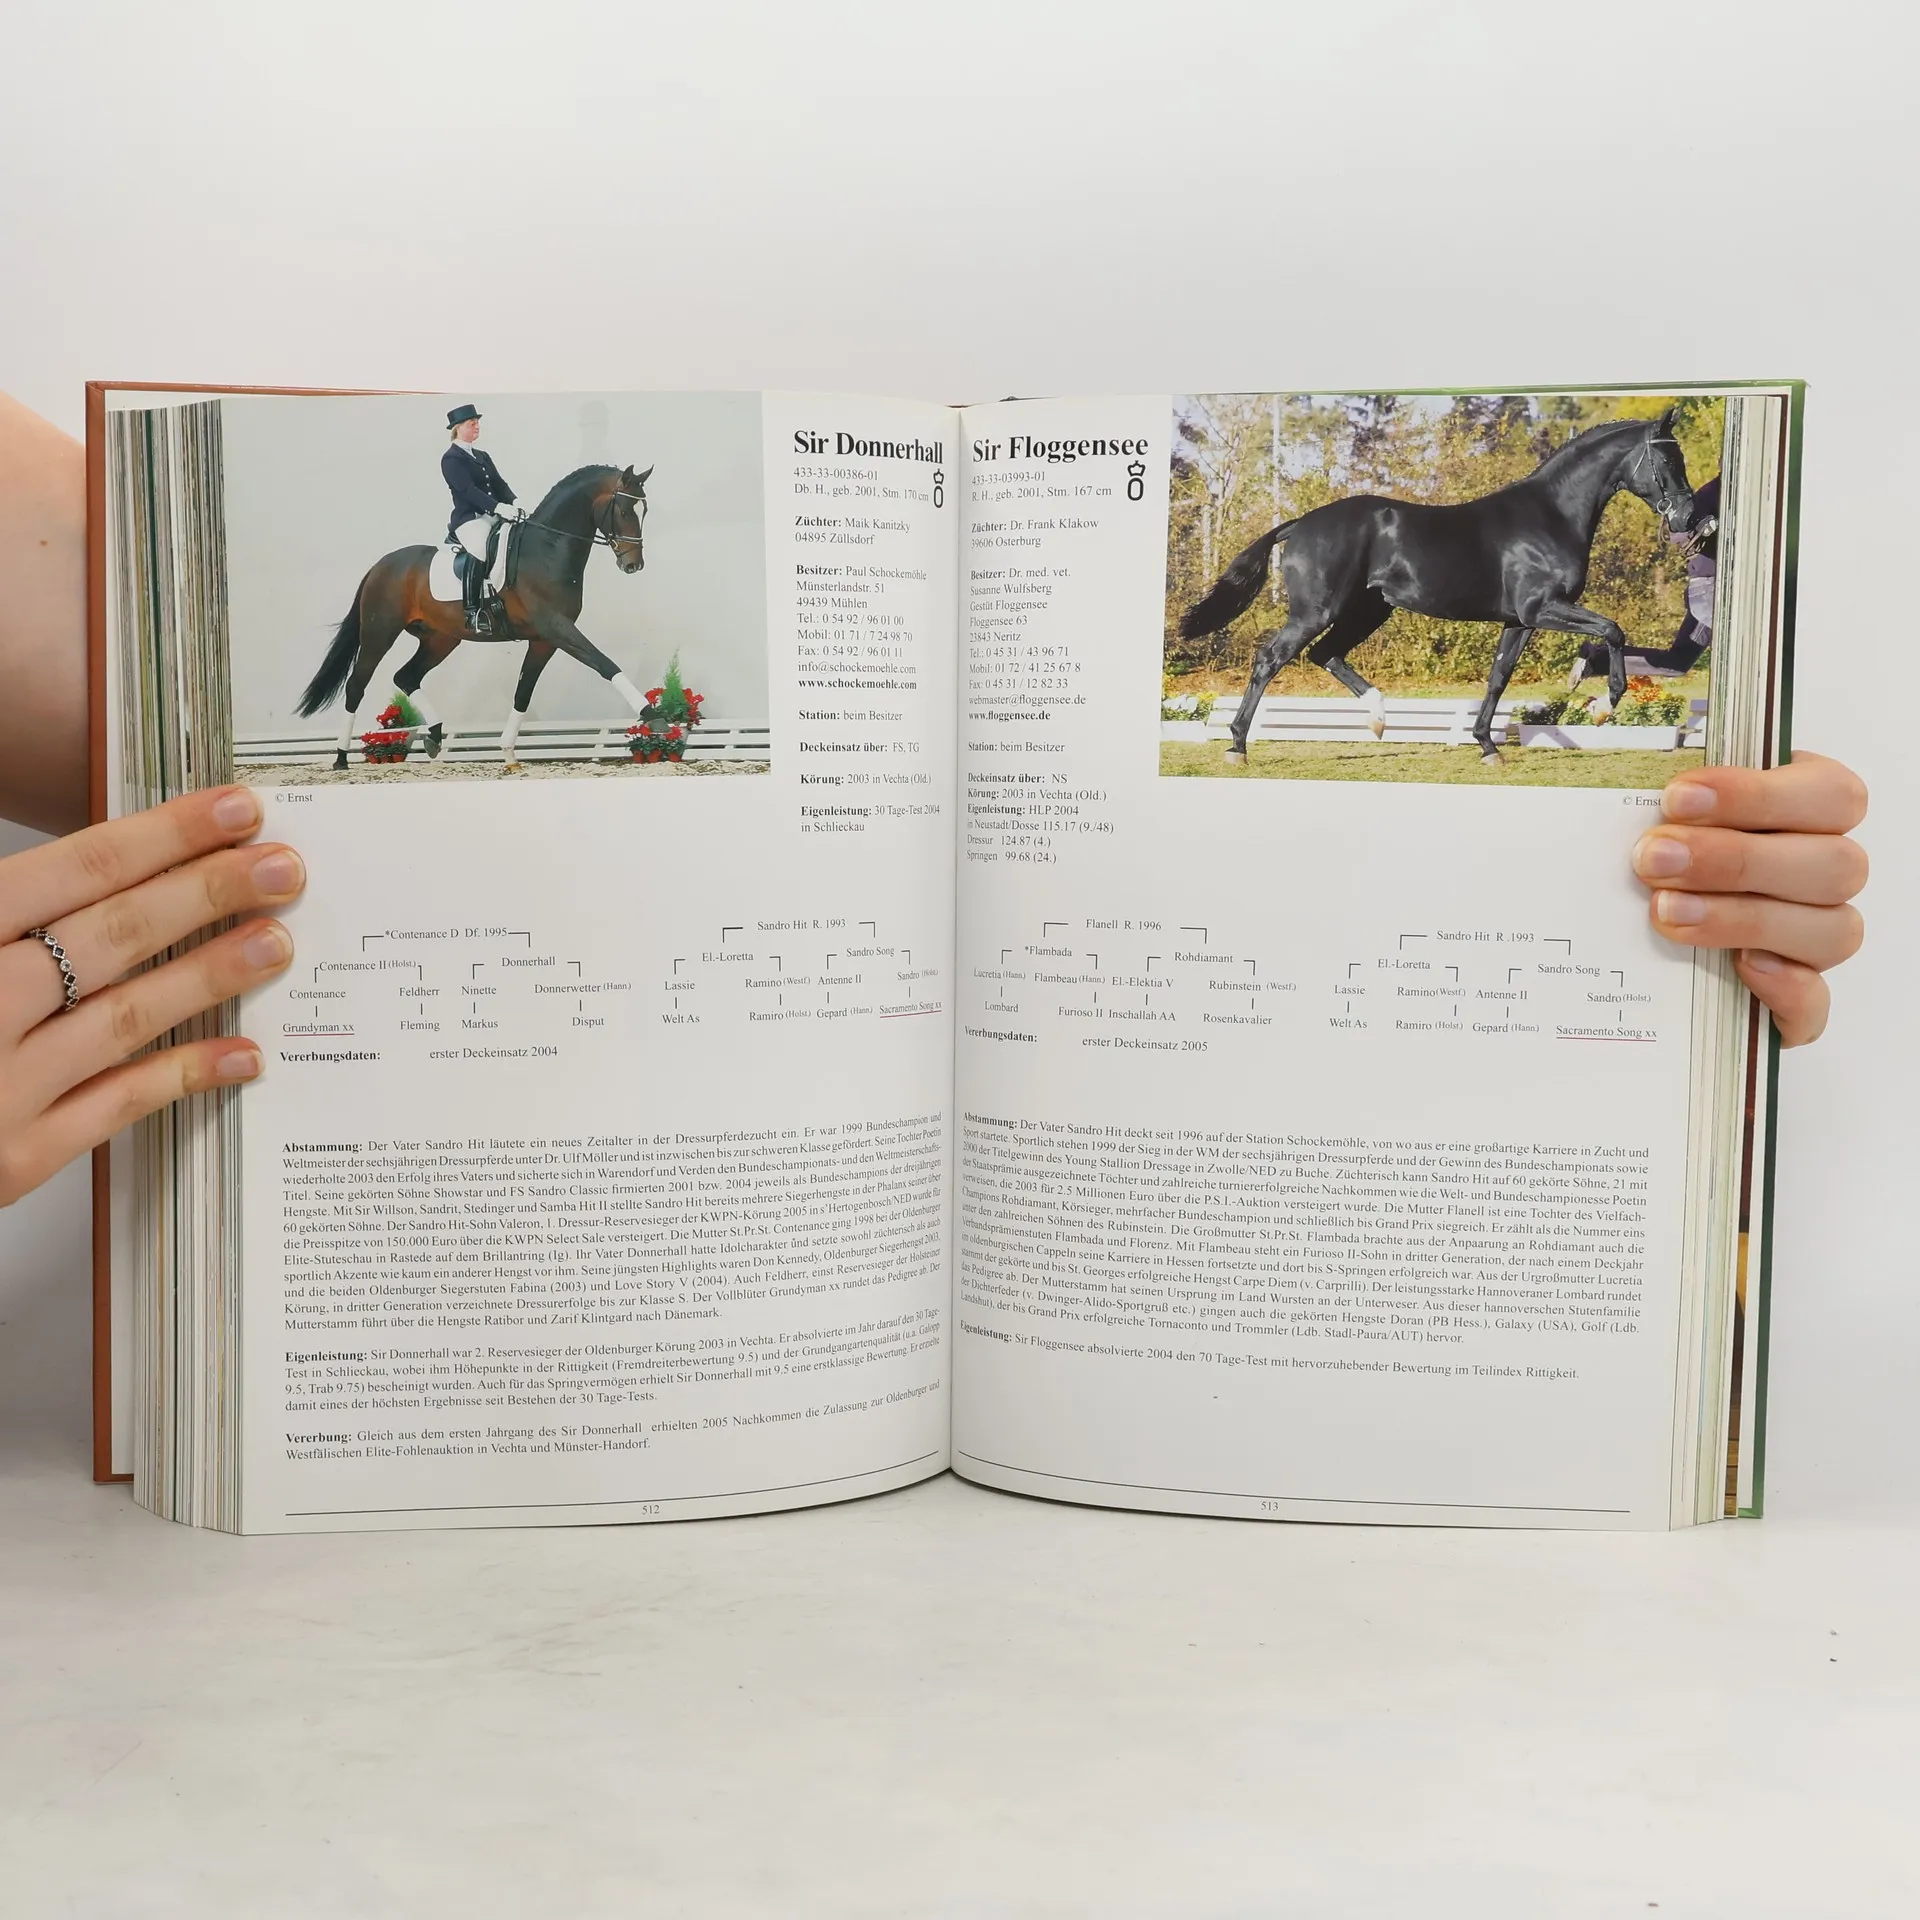 Sir Donnerhall
433-33-00386-01
Db. H., geb. 2001, Stm. 170 cm
O
Züchter: Maik Kanitzky
04895 Züllsdorf
Besitzer: Paul Schockemöhle
Münsterlandstr. 51
49439 Mühlen
Tel.: 0 54 92 / 96 01 00
Mobil: 01 71 / 7 24 98 70
Fax: 0 54 92 / 96 01 11
info@schockemoehle.com
www.schockemoehle.com
Station: beim Besitzer
Deckeinsatz über: FS, TG
Körung: 2003 in Vechta (Old.)
Eigenleistung: 30 Tage-Test 2004
in Schlieckau
© Ernst
*Contenance D Df. 1995
Sandro Hit R. 1993
Contenance II (Holst.) Donnerhall El.-Loretta Sandro Song
Contenance Feldherr Ninette Donnerwetter (Hann.) Lassie Ramino (Westf.) Antenne II Sandro (Holst.)
Grundyman xx Fleming Markus Disput Welt As Ramiro (Holst.) Gepard (Hann.) Sacramento Song xx
Vererbungsdaten: erster Deckeinsatz 2004
Abstammung: Der Vater Sandro Hit läutete ein neues Zeitalter in der Dressurpferdezucht ein. Er war 1999 Bundeschampion und
Weltmeister der sechsjährigen Dressurpferde unter Dr. Ulf Möller und ist inzwischen bis zur schweren Klasse gefördert. Seine Tochter Poetin
wiederholte 2003 den Erfolg ihres Vaters und sicherte sich in Warendorf und Verden den Bundeschampionats- und den Weltmeisterschafts-
Titel. Seine gekörten Söhne Showstar und FS Sandro Classic firmierten 2001 bzw. 2004 jeweils als Bundeschampions der dreijährigen
Hengste. Mit Sir Willson, Sandrit, Stedinger und Samba Hit II stellte Sandro Hit bereits mehrere Siegerhengste in der Phalanx seiner über
60 gekörten Söhne. Der Sandro Hit-Sohn Valeron, 1. Dressur-Reservesieger der KWPN-Körung 2005 in s'Hertogenbosch/NED wurde für
die Preisspitze von 150.000 Euro über die KWPN Select Sale versteigert. Die Mutter St.Pr.St. Contenance ging 1998 bei der Oldenburger
Elite-Stuteschau in Rastede auf dem Brillantring (Ig). Ihr Vater Donnerhall hatte Idolcharakter und setzte sowohl züchterisch als auch
sportlich Akzente wie kaum ein anderer Hengst vor ihm. Seine jüngsten Highlights waren Don Kennedy, Oldenburger Siegerhengst 2003,
und die beiden Oldenburger Siegerstuten Fabina (2003) und Love Story V (2004). Auch Feldherr, einst Reservesieger der Holsteiner
Körung, in dritter Generation verzeichnete Dressurerfolge bis zur Klasse S. Der Vollblüter Grundyman xx rundet das Pedigree ab. Der
Mutterstamm führt über die Hengste Ratibor und Zarif Klintgard nach Dänemark.
Eigenleistung: Sir Donnerhall war 2. Reservesieger der Oldenburger Körung 2003 in Vechta. Er absolvierte im Jahr darauf den 30 Tage-
Test in Schlieckau, wobei ihm Höhepunkte in der Rittigkeit (Fremdreiterbewertung 9.5) und der Grundgangartenqualität (u.a. Galopp
9.5, Trab 9.75) bescheinigt wurden. Auch für das Springvermögen erhielt Sir Donnerhall mit 9.5 eine erstklassige Bewertung. Er erzielte
damit eines der höchsten Ergebnisse seit Bestehen der 30 Tage-Tests.
Vererbung: Gleich aus dem ersten Jahrgang des Sir Donnerhall erhielten 2005 Nachkommen die Zulassung zur Oldenburger und
Westfälischen Elite-Fohlenauktion in Vechta und Münster-Handorf.
512
Sir Floggensee
433-33-03993-01
R. H., geb. 2001, Stm. 167 cm
O
Züchter: Dr. Frank Klakow
39606 Osterburg
Besitzer: Dr. med. vet.
Susanne Wulfsberg
Gestüt Floggensee
Floggensee 63
23843 Neritz
Tel.: 0 45 31 / 43 96 71
Mobil: 01 72 / 41 25 67 8
Fax: 0 45 31 / 12 82 33
webmaster@floggensee.de
www.floggensee.de
Station: beim Besitzer
Deckeinsatz über: NS
Körung: 2003 in Vechta (Old.)
Eigenleistung: HLP 2004
in Neustadt/Dosse 115.17 (9./48)
Dressur 124.87 (4.)
Springen 99.68 (24.)
© Ernst
Flanell R. 1996
Sandro Hit R .1993
*Flambada Rohdiamant El.-Loretta Sandro Song
Lucretia (Hann.) Flambeau (Hann.) El.-Elektia V Rubinstein (Westf.) Lassie Ramino (Westf.) Antenne II Sandro (Holst.)
Lombard Furioso II Inschallah AA Rosenkavalier Welt As Ramiro (Holst.) Gepard (Hann.) Sacramento Song xx
Vererbungsdaten: erster Deckeinsatz 2005
Abstammung: Der Vater Sandro Hit deckt seit 1996 auf der Station Schockemöhle, von wo aus er eine großartige Karriere in Zucht und
Sport startete. Sportlich stehen 1999 der Sieg in der WM der sechsjährigen Dressurpferde und der Gewinn des Bundeschampionats sowie
2000 der Titelgewinn des Young Stallion Dressage in Zwolle/NED zu Buche. Züchterisch kann Sandro Hit auf 60 gekörte Söhne, 21 mit
der Staatsprämie ausgezeichnete Töchter und zahlreiche turniererfolgreiche Nachkommen wie die Welt- und Bundeschampionesse Poetin
verweisen, die 2003 für 2.5 Millionen Euro über die P.S.I.-Auktion versteigert wurde. Die Mutter Flanell ist eine Tochter des Vielfach-
Champions Rohdiamant, Körsieger, mehrfacher Bundeschampion und schließlich bis Grand Prix siegreich. Er zählt als die Nummer eins
unter den zahlreichen Söhnen des Rubinstein. Die Großmutter St.Pr.St. Flambada brachte aus der Anpaarung an Rohdiamant auch die
Verbandsprämienstuten Flambada und Florenz. Mit Flambeau steht ein Furioso II-Sohn in dritter Generation, der nach einem Deckjahr
im oldenburgischen Cappeln seine Karriere in Hessen fortsetzte und dort bis S-Springen erfolgreich war. Aus der Urgroßmutter Lucretia
stammt der gekörte und bis St. Georges erfolgreiche Hengst Carpe Diem (v. Carprilli). Der leistungsstarke Hannoveraner Lombard rundet
das Pedigree ab. Der Mutterstamm hat seinen Ursprung im Land Wursten an der Unterweser. Aus dieser hannoverschen Stutenfamilie
der Dichterfeder (v. Dwinger-Alido-Sportgruß etc.) gingen auch die gekörten Hengste Doran (PB Hess.), Galaxy (USA), Golf (Ldb.
Landshut), der bis Grand Prix erfolgreiche Tornaconto und Trommler (Ldb. Stadl-Paura/AUT) hervor.
Eigenleistung: Sir Floggensee absolvierte 2004 den 70 Tage-Test mit hervorzuhebender Bewertung im Teilindex Rittigkeit.
513